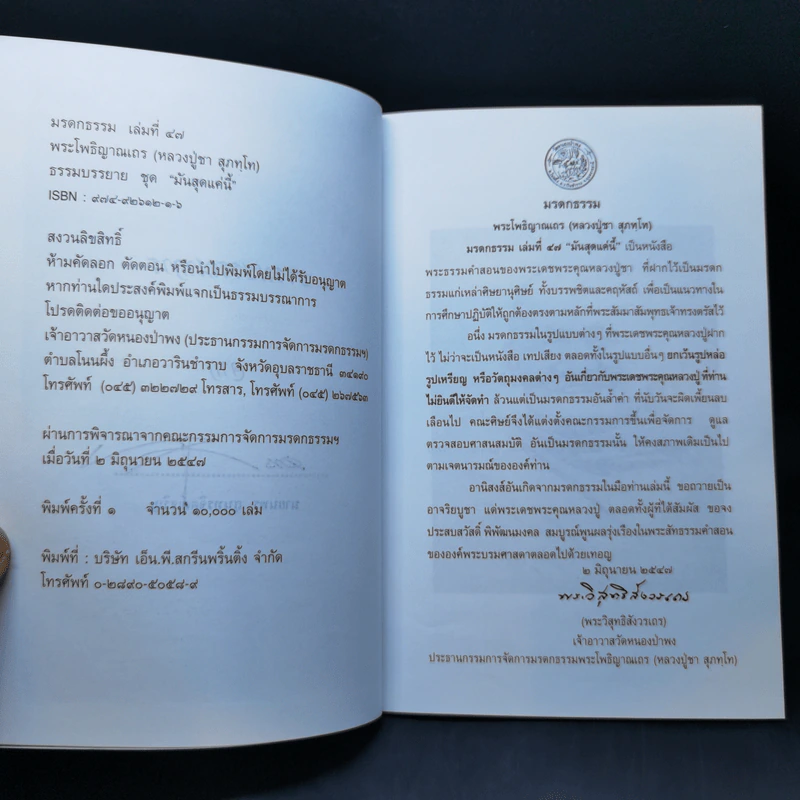 มรดกธรรม เล่มที่ ๔๗
พระโพธิญาณเถร (หลวงปู่ชา สุภทฺโท)
ธรรมบรรยาย ชุด "มันสุดแค่นี้"
ISBN : ๙๗๔-๙๒๖๑๒-๑-๖
สงวนลิขสิทธิ์
ห้ามคัดลอก ตัดตอน หรือนำไปพิมพ์โดยไม่ได้รับอนุญาต
หากท่านใดประสงค์พิมพ์แจกเป็นธรรมบรรณาการ
โปรดติดต่อขออนุญาต
เจ้าอาวาสวัดหนองป่าพง (ประธานกรรมการจัดการมรดกธรรมฯ)
ตำบลโนนผึ้ง อำเภอวารินชำราบ จังหวัดอุบลราชธานี ๓๔๑๙๐
โทรศัพท์ (๐๔๕) ๓๒๒๗๒๙ โทรสาร, โทรศัพท์ (๐๔๕) ๒๖๗๕๖๓
ผ่านการพิจารณาจากคณะกรรมการจัดการมรดกธรรมฯ
เมื่อวันที่ ๒ มิถุนายน ๒๕๔๗
พิมพ์ครั้งที่ ๑ จำนวน ๑๐,๐๐๐ เล่ม
พิมพ์ที่ : บริษัท เอ็น.พี.สกรีนพริ้นติ้ง จำกัด
โทรศัพท์ ๐-๒๘๙๐-๕๐๕๘-๙
มรดกธรรม
พระโพธิญาณเถร (หลวงปู่ชา สุภทฺโท)
มรดกธรรม เล่มที่ ๔๗ "มันสุดแค่นี้" เป็นหนังสือ
พระธรรมคำสอนของพระเดชพระคุณหลวงปู่ชา ที่ฝากไว้เป็นมรดก
ธรรมแก่เหล่าศิษยานุศิษย์ ทั้งบรรพชิตและคฤหัสถ์ เพื่อเป็นแนวทางใน
การศึกษาปฏิบัติให้ถูกต้องตรงตามหลักที่พระสัมมาสัมพุทธเจ้าทรงตรัสไว้
อนึ่ง มรดกธรรมในรูปแบบต่างๆ ที่พระเดชพระคุณหลวงปู่ฝาก
ไว้ ไม่ว่าจะเป็นหนังสือ เทปเสียง ตลอดทั้งในรูปแบบอื่นๆ ยกเว้นรูปหล่อ
รูปเหรียญ หรือวัตถุมงคลต่างๆ อันเกี่ยวกับพระเดชพระคุณหลวงปู่ ที่ท่าน
ไม่ยินดีให้จัดทำ ล้วนแต่เป็นมรดกธรรมอันล้ำค่า ที่นับวันจะผิดเพี้ยนลบ
เลือนไป คณะศิษย์จึงได้แต่งตั้งคณะกรรมการขึ้นเพื่อจัดการ ดูแล
ตรวจสอบศาสนสมบัติ อันเป็นมรดกธรรมนั้น ให้คงสภาพเดิมเป็นไป
ตามเจตนารมณ์ขององค์ท่าน
อานิสงส์อันเกิดจากมรดกธรรมในมือท่านเล่มนี้ ขอถวายเป็น
อาจริยบูชา แด่พระเดชพระคุณหลวงปู่ ตลอดทั้งผู้ที่ได้สัมผัส ขอจง
ประสบสวัสดิ์ พิพัฒนมงคล สมบูรณ์พูนผลรุ่งเรืองในพระสัทธรรมคำสอน
ขององค์พระบรมศาสดาตลอดไปด้วยเทอญ
๒ มิถุนายน ๒๕๔๗
พระวิสุทธิสังวรเถร
(พระวิสุทธิสังวรเถร)
เจ้าอาวาสวัดหนองป่าพง
ประธานกรรมการจัดการมรดกธรรมพระโพธิญาณเถร (หลวงปู่ชา สุภทฺโท)